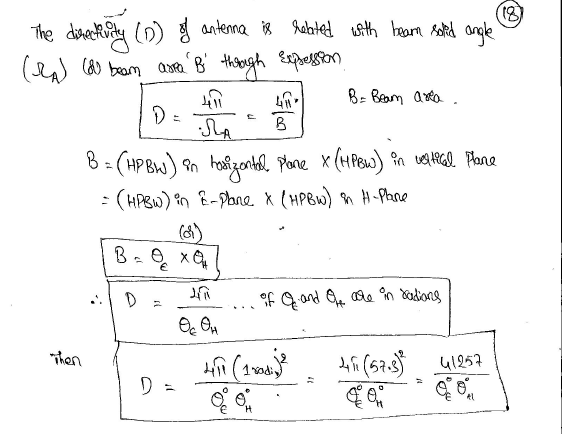 (18)
The directivity (D) of antenna is related with beam solid angle
(Ω_A) (or) beam area 'B' through expression
D = 4π / Ω_A = 4π / B    B = Beam area.
B = (HPBW) in horizontal plane × (HPBW) in vertical plane
= (HPBW) in E-plane × (HPBW) in H-plane
(or)
B = θ_E × θ_H
∴ D = 4π / θ_E θ_H ... if θ_E and θ_H are in radians
Then D = 4π (1 radi)² / θ_E° θ_H° = 4π (57.3)² / θ_E° θ_H° = 41257 / θ_E° θ_H°